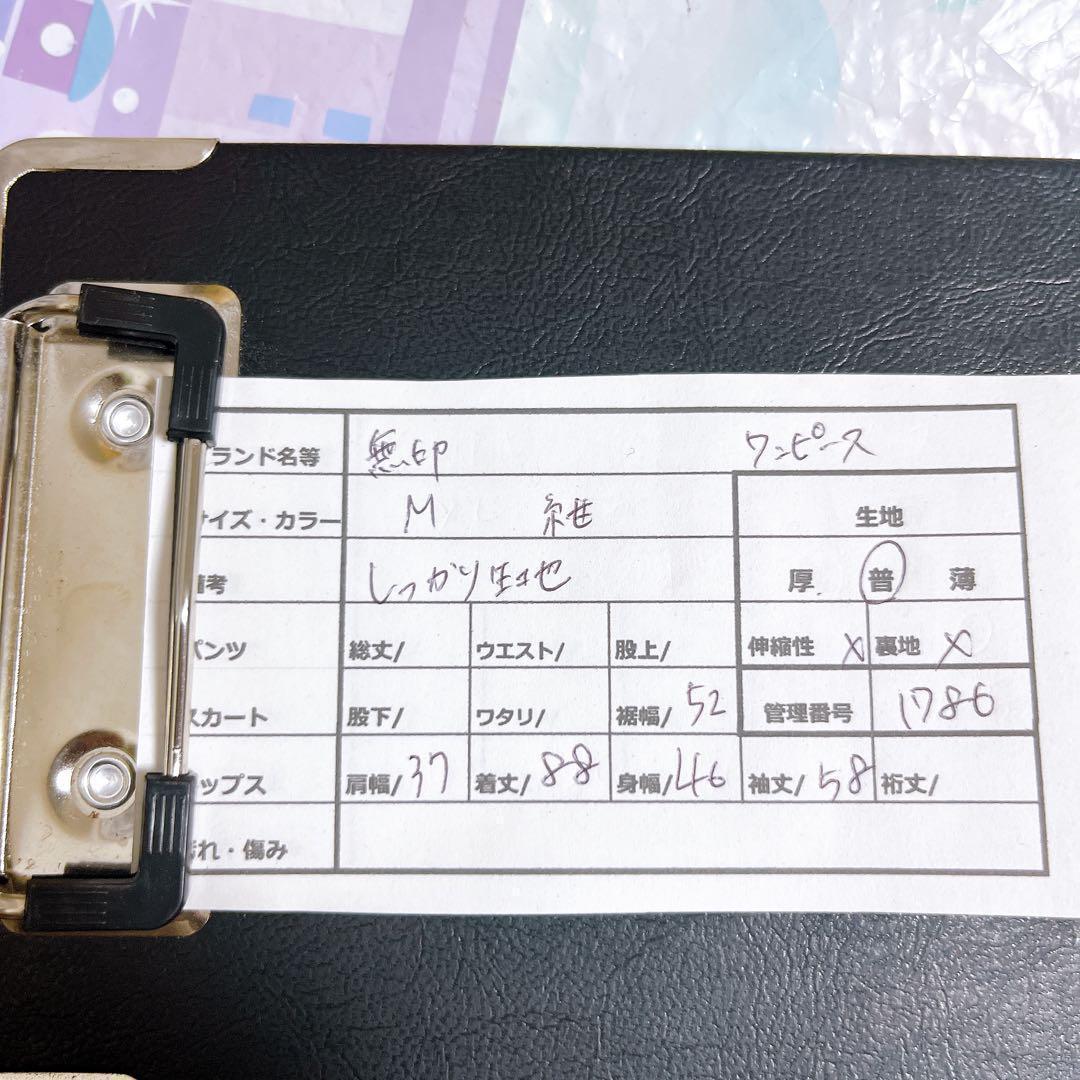 ランド名等 無印 ワンピース
サイズ・カラー M 紺 生地
考 しっかり生地 厚 普 薄
パンツ 総丈/ ウエスト/ 股上/ 伸縮性 X 裏地 X
スカート 股下/ ワタリ/ 裾幅/ 52 管理番号 1786
ップス 肩幅/37 着丈/88 身幅/46 袖丈/58 裄丈/
れ・傷み